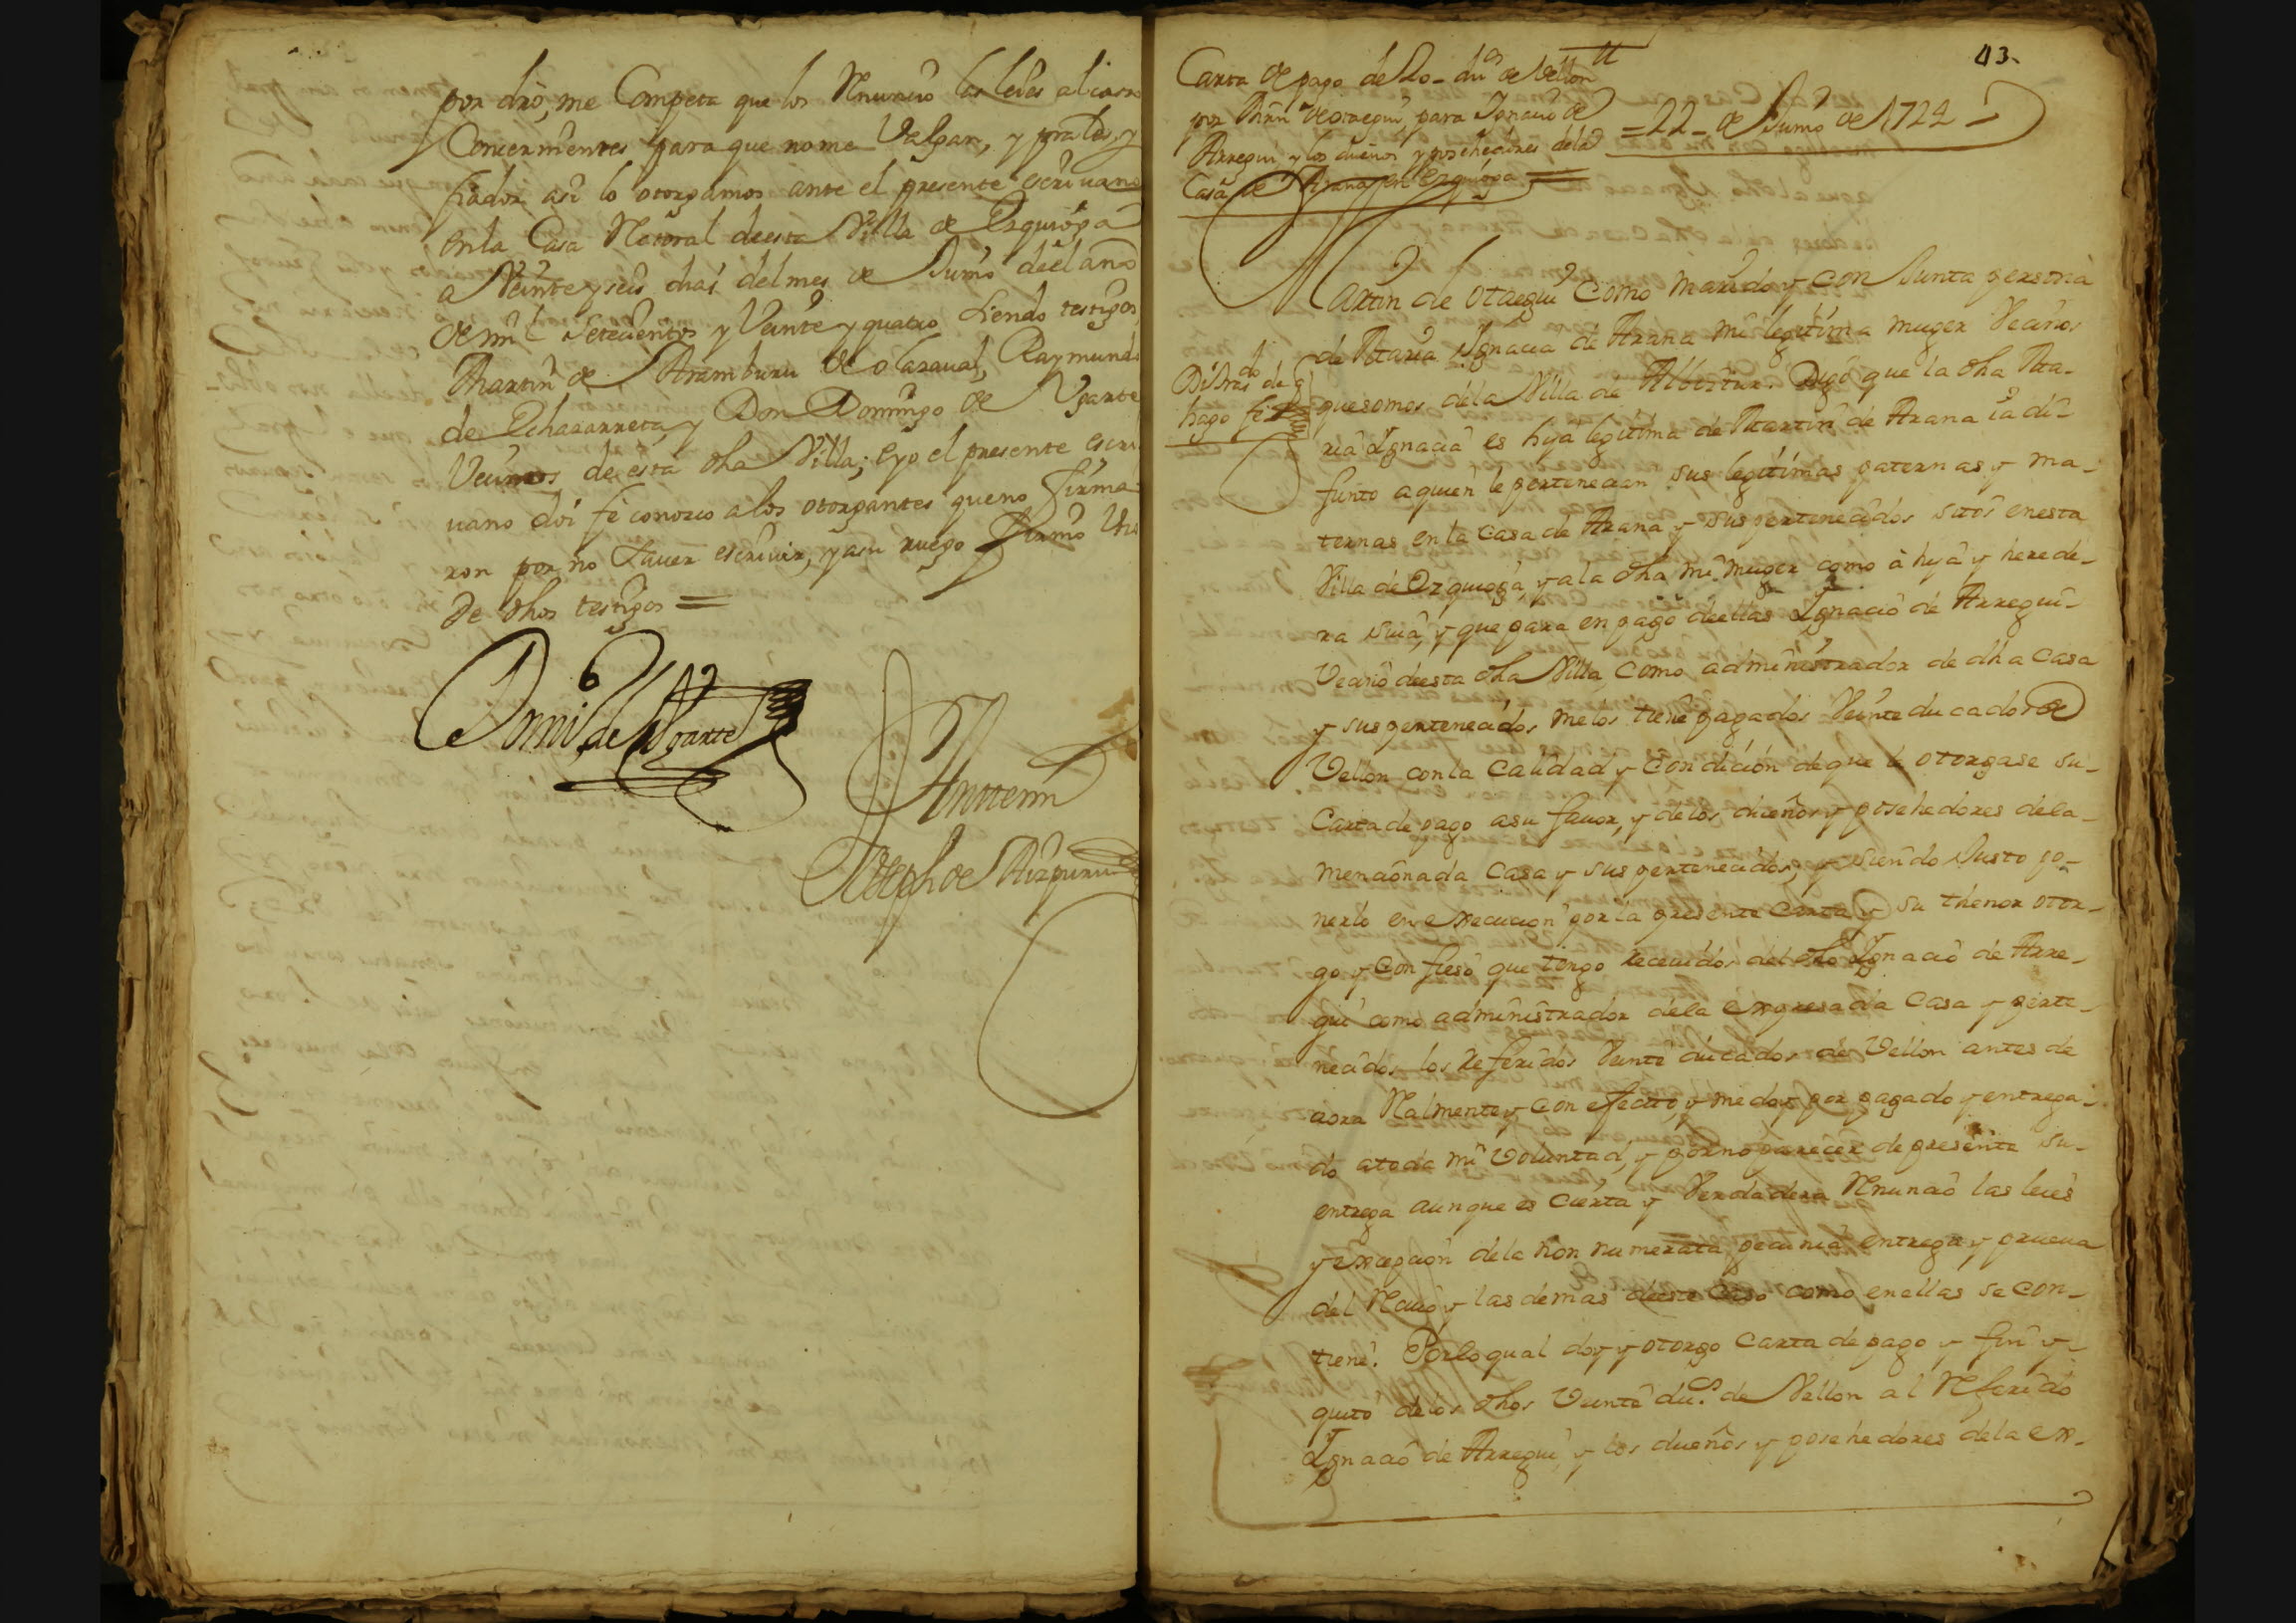 por dro, me Competa que los Renunçio las leies al caso
Concernientes para que no me Valgan, y pral, y
fiador asi lo otorgamos ante el presente escriuano
en la Casa Natoral de esta Villa de Ezquioga
a Veinte y seis dias del mes de Junio de el año
de mil Setecientos y Veinte y quatro siendo testigos
Martin de Aramburu de olazaual, Raymundo
de Echazarreta, y Don Domingo de Vgarte
Vecinos de esta dha Villa; e yo el presente escri
uano doi fe conozco a los otorgantes que no firma
ron por no Sauer escriuir, y a su ruego firmo Vno
de dhos testigos =
Domi de Vgarte
Anttemi
Joseph de Aizpuru
43
Carta de pago de 20 - dus de Vellon
por Min de Otaegui, para Ignacio de
Arregui, y los dueños y posehedores dela
Casa de Arana en Ezquioga =
= 22 - de Junio de 1724 -
Martin de Otaegui Como marido y Con Junta persona
de Maria Ignacia de Arana mi legitima muger Vecinos
que somos dela Villa de Albiztur. Digo que la dha Ma-
ria Ignacia es hija legitima de Martin de Arana ia di-
funto a quien le pertenecian sus legitimas paternas y ma-
ternas en la Casa de Arana y sus pertenecidos sitos en esta
Villa de Ezquioga, y a la dha mi muger como à hija y herede-
ra suia, y que para en pago de ellas Ignacio de Arregui-
Vecino de esta dha Villa, Como administrador de dha Casa
y sus pertenecidos me los tiene pagados Veinte ducados de
Vellon con la Calidad y Condicion de que le otorgase su-
Carta de pago a su fauor, y de los dueños y posehedores dela-
mencionada Casa y sus pertenecidos, y siendo Justo po-
nerlo en execucion por la presente Carta y su thenor otor-
go y Confieso que tengo receuidos del dho Ignacio de Arre-
gui como administrador dela expresada Casa y perte-
necidos los referidos Veinte ducados de Vellon antes de
aora Realmente y Con efecto, y me doy por pagado y entrega-
do a toda mi Voluntad, y por no parecer de presente su-
entrega aunque es Cierta y Verdadera Renuncio las leies
y excepcion dela non numerata pecunia entrega y prueua
del Reciuo y las demas de este Caso como en ellas se Con-
tiene. Por lo qual doy y otorgo Carta de pago y fin y-
quito de los dhos Veinte dus. de Vellon al Referido
Ignacio de Arregui y los dueños y posehedores dela ex-